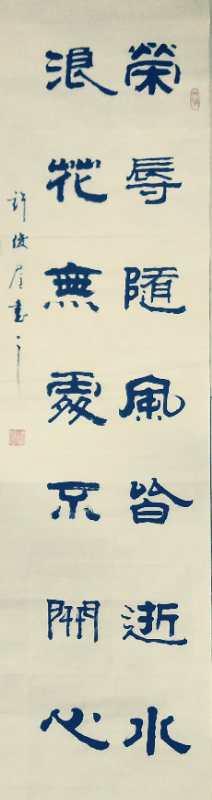 榮辱隨風皆逝水
浪花無處不開心
許俊書